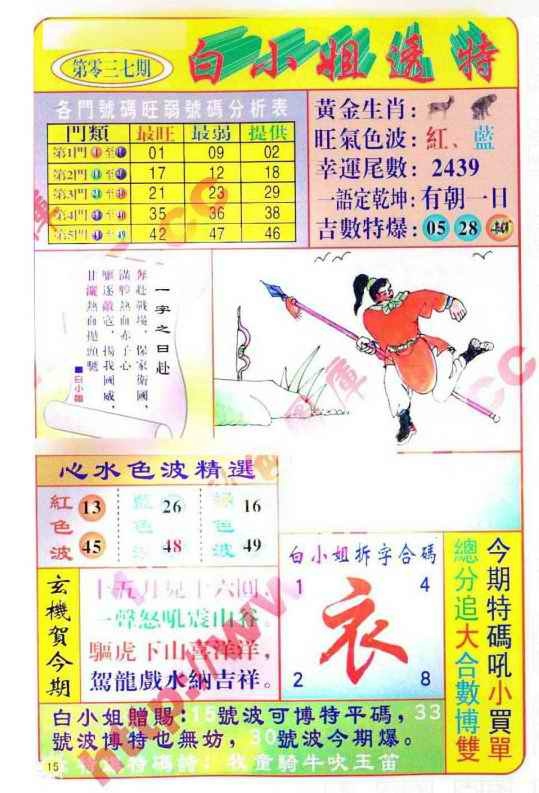 第零三七期
白小姐透特
各門號碼旺弱號碼分析表
門類 最旺 最弱 提供
第1門 至 01 09 02
第2門 至 17 12 18
第3門 至 21 23 29
第4門 至 35 36 38
第5門 至 49 42 47 46
黃金生肖:
旺氣色波:紅、藍
幸運尾數:2439
一語定乾坤:有朝一日
吉數特爆:05 28
一字之曰赴
奔赴戰場,保家衛國,
滿腔熱血赤子心
驅逐敵寇,揚我國威,
甘灑熱血拋頭顱
■白小姐
心水色波精選
紅色波 13 45
藍色波 26 48
綠色波 16 49
玄機賀今期
十五月兒十六回,
一聲怒吼震山谷。
驅虎下山喜洋洋,
駕龍戲水納吉祥。
白小姐拆字合碼
1 4
衣
2 8
今期特碼吼小買單
總分追大合數博雙
白小姐贈賜:15號波可博特平碼,33
號波博特也無妨,30號波今期爆。
特碼詩:牧童騎牛吹玉笛
15
http://www.
.cc
庫